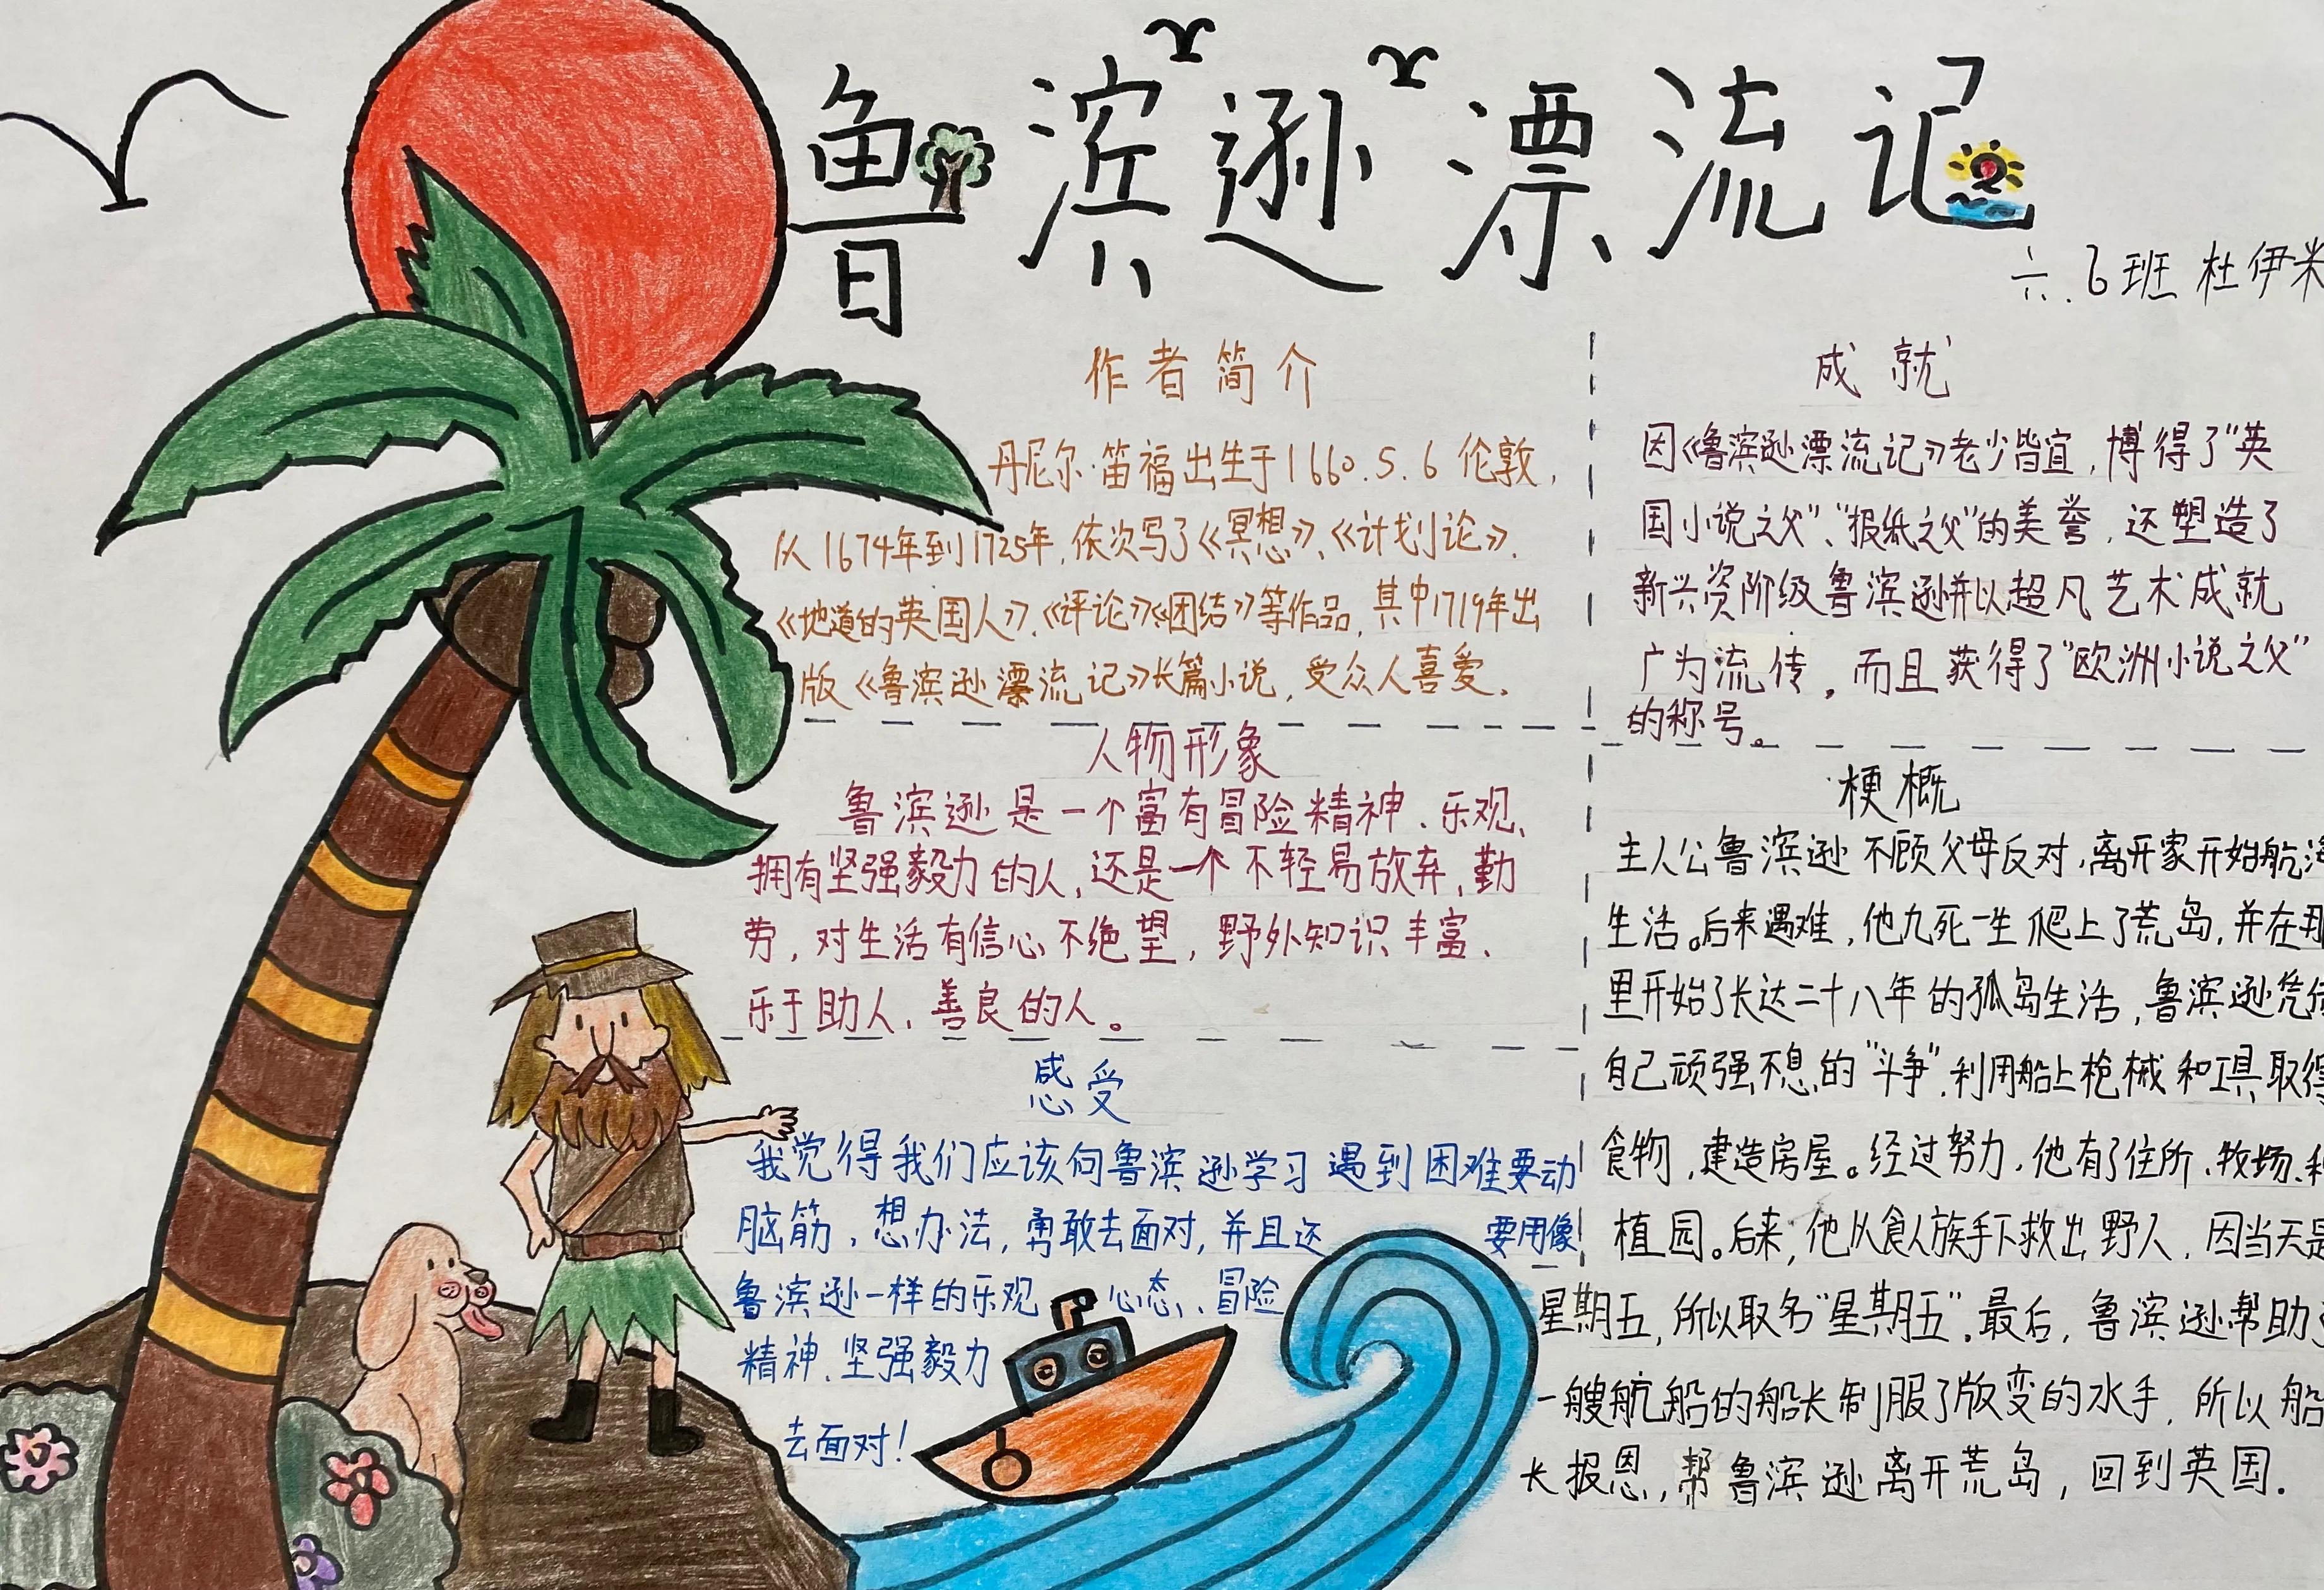 鲁滨逊漂流记
六.6班 杜伊米
作者简介
丹尼尔·笛福出生于1660.5.6伦敦,
从1674年到1725年,依次写了《冥想》、《计划论》.
《地道的英国人》、《评论》《团结》等作品,其中1719年出
版《鲁滨逊漂流记》长篇小说,受众人喜爱.
人物形象
鲁滨逊是一个富有冒险精神、乐观、
拥有坚强毅力的人,还是一个不轻易放弃,勤
劳,对生活有信心不绝望,野外知识丰富、
乐于助人、善良的人。
感受
我觉得我们应该向鲁滨逊学习 遇到困难要动
脑筋、想办法,勇敢去面对,并且还 要用像
鲁滨逊一样的乐观 心态、冒险
精神、坚强毅力
去面对!
成就
因《鲁滨逊漂流记》老少皆宜,博得了“英
国小说之父”、“报纸之父”的美誉,还塑造了
新兴资阶级鲁滨逊并以超凡艺术成就
广为流传。而且获得了“欧洲小说之父”
的称号。
梗概
主人公鲁滨逊不顾父母反对,离开家开始航海
生活。后来遇难,他九死一生爬上了荒岛,并在那
里开始了长达二十八年的孤岛生活,鲁滨逊凭
自己顽强不息的“斗争”,利用船上枪械和工具取得
食物,建造房屋。经过努力,他有了住所、牧场、
植园。后来,他从食人族手下救出野人,因当天是
星期五,所以取名“星期五”.最后,鲁滨逊帮助
一艘航船的船长制服了版变的水手,所以船
长报恩,帮鲁滨逊离开荒岛,回到英国.